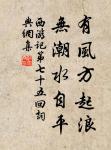 有風方起浪
無潮水自平
西游記第七十五回詞
與網集